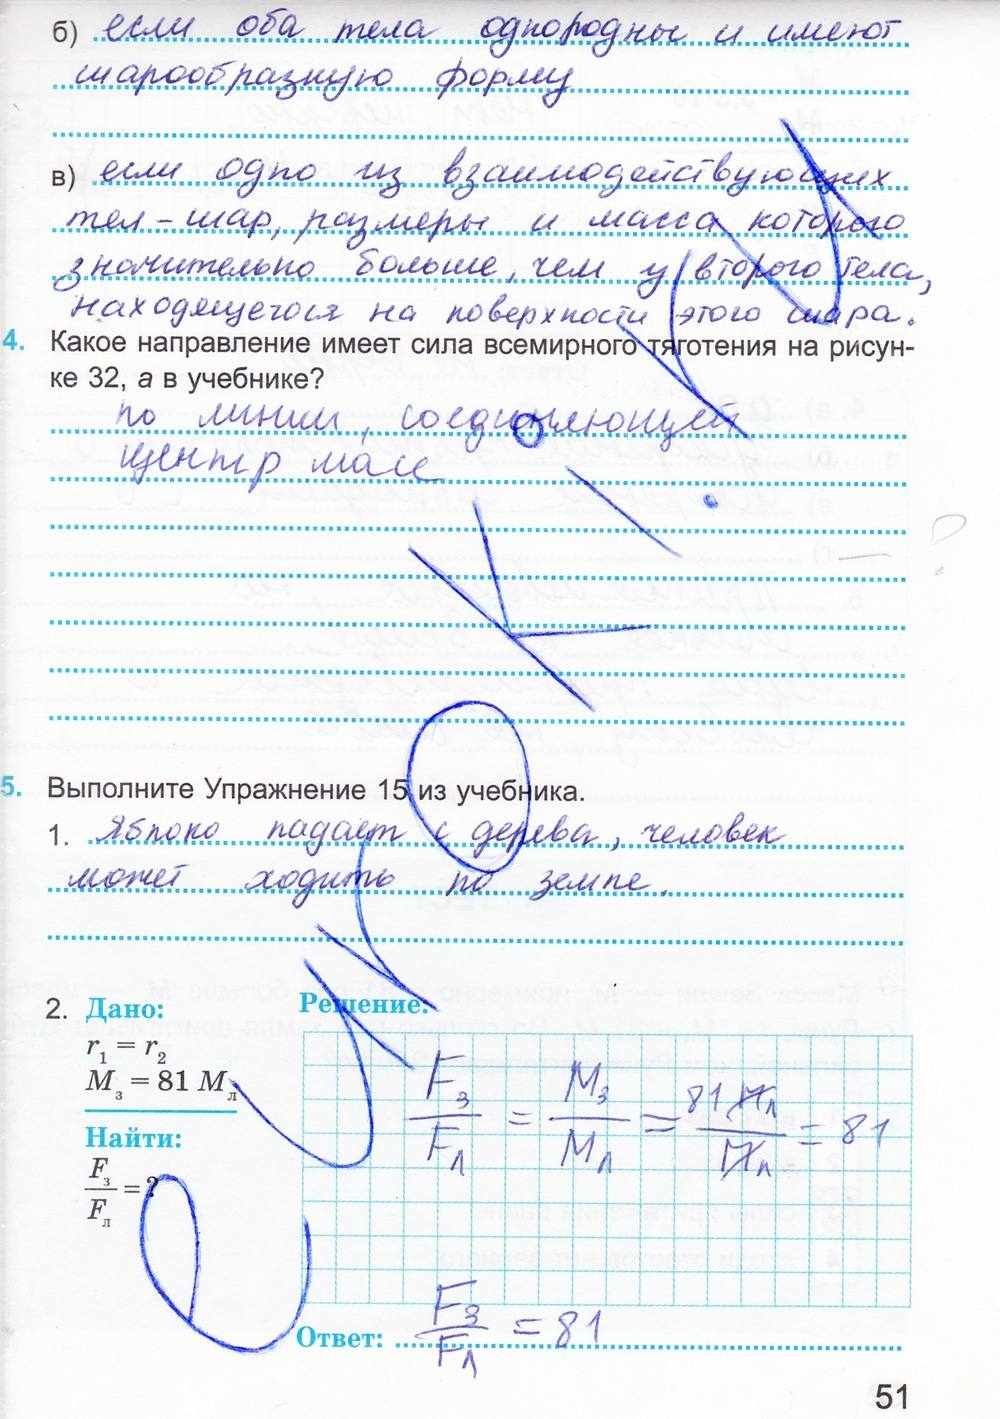 б) если оба тела однородны и имеют
шарообразную форму
в) если одно из взаимодействующих
тел - шар, размеры и масса которого
значительно больше, чем у второго тела,
находящегося на поверхности этого шара.
4. Какое направление имеет сила всемирного тяготения на рисун-
ке 32, а в учебнике?
по линии, соединяющей
центр масс
5. Выполните Упражнение 15 из учебника.
1. Яблоко падает с дерева, человек
может ходить по земле.
2. Дано: Решение:
r₁ = r₂
Mз = 81 Mл
Fз/Fл = Mз/Mл = 81 Mл/Mл = 81
Найти:
Fз/Fл = ?
Ответ: Fз/Fл = 81
51